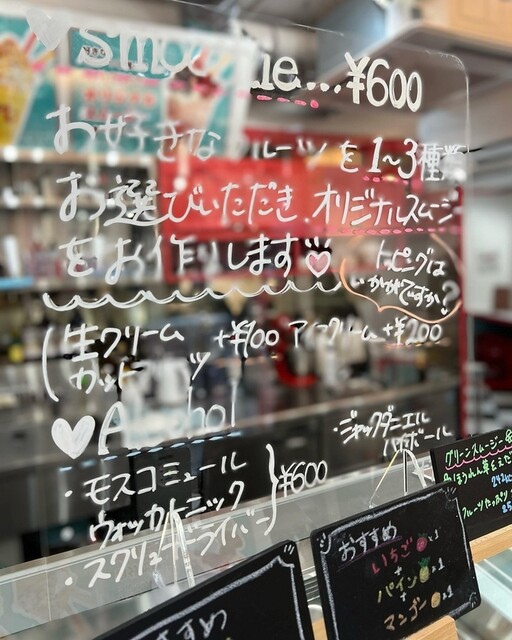 ¥600
お好きなフルーツを1~3種類
お選びいただき、オリジナルスムージー
をお作りします
トッピングは
いかがですか?
生クリーム +¥100 アイスクリーム +¥200
カットフルーツ
Alcohol
・モスコミュール
ウォッカトニック
・スクリュードライバー
¥600
・ジャックダニエル
ハイボール
グリーンスムージー
おすすめ
いちご ×1
+
パイン ×1
+
マンゴー ×1
すすめ